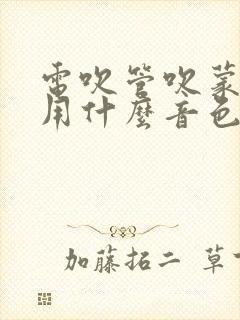 電吹管吹蒙
用什麼音色
加藤拓二 草